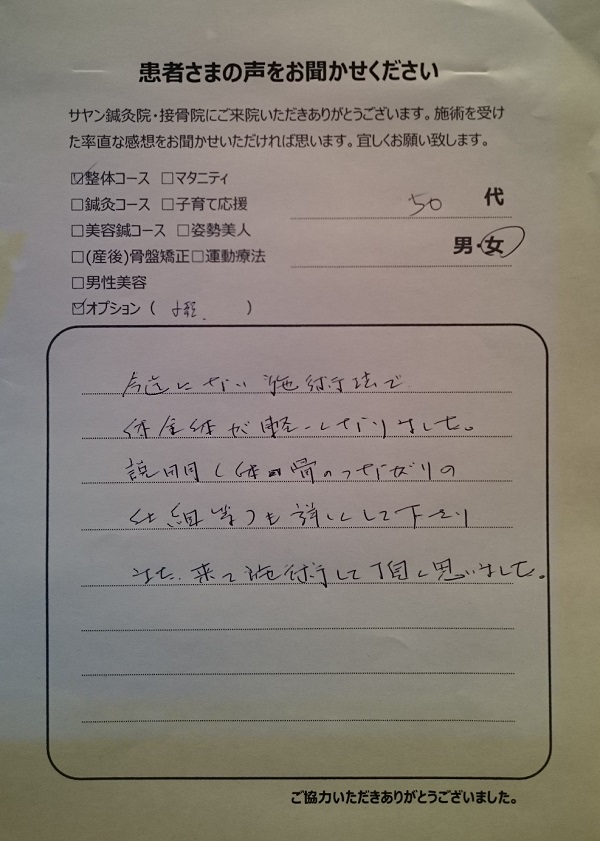 患者さまの声をお聞かせください
サヤン鍼灸院・接骨院にご来院いただきありがとうございます。施術を受け
た率直な感想をお聞かせいただければ思います。宜しくお願い致します。
☑整体コース □マタニティ
□鍼灸コース □子育て応援
□美容鍼コース □姿勢美人
□(産後)骨盤矯正□運動療法
□男性美容
☑オプション ( )
50 代
男・女
今迄にない施術方法で
体全体が軽くなりました。
説明し体の骨のつながりの
仕組等も詳しくして下さり
また、来て施術して頂く思いました。
ご協力いただきありがとうございました。